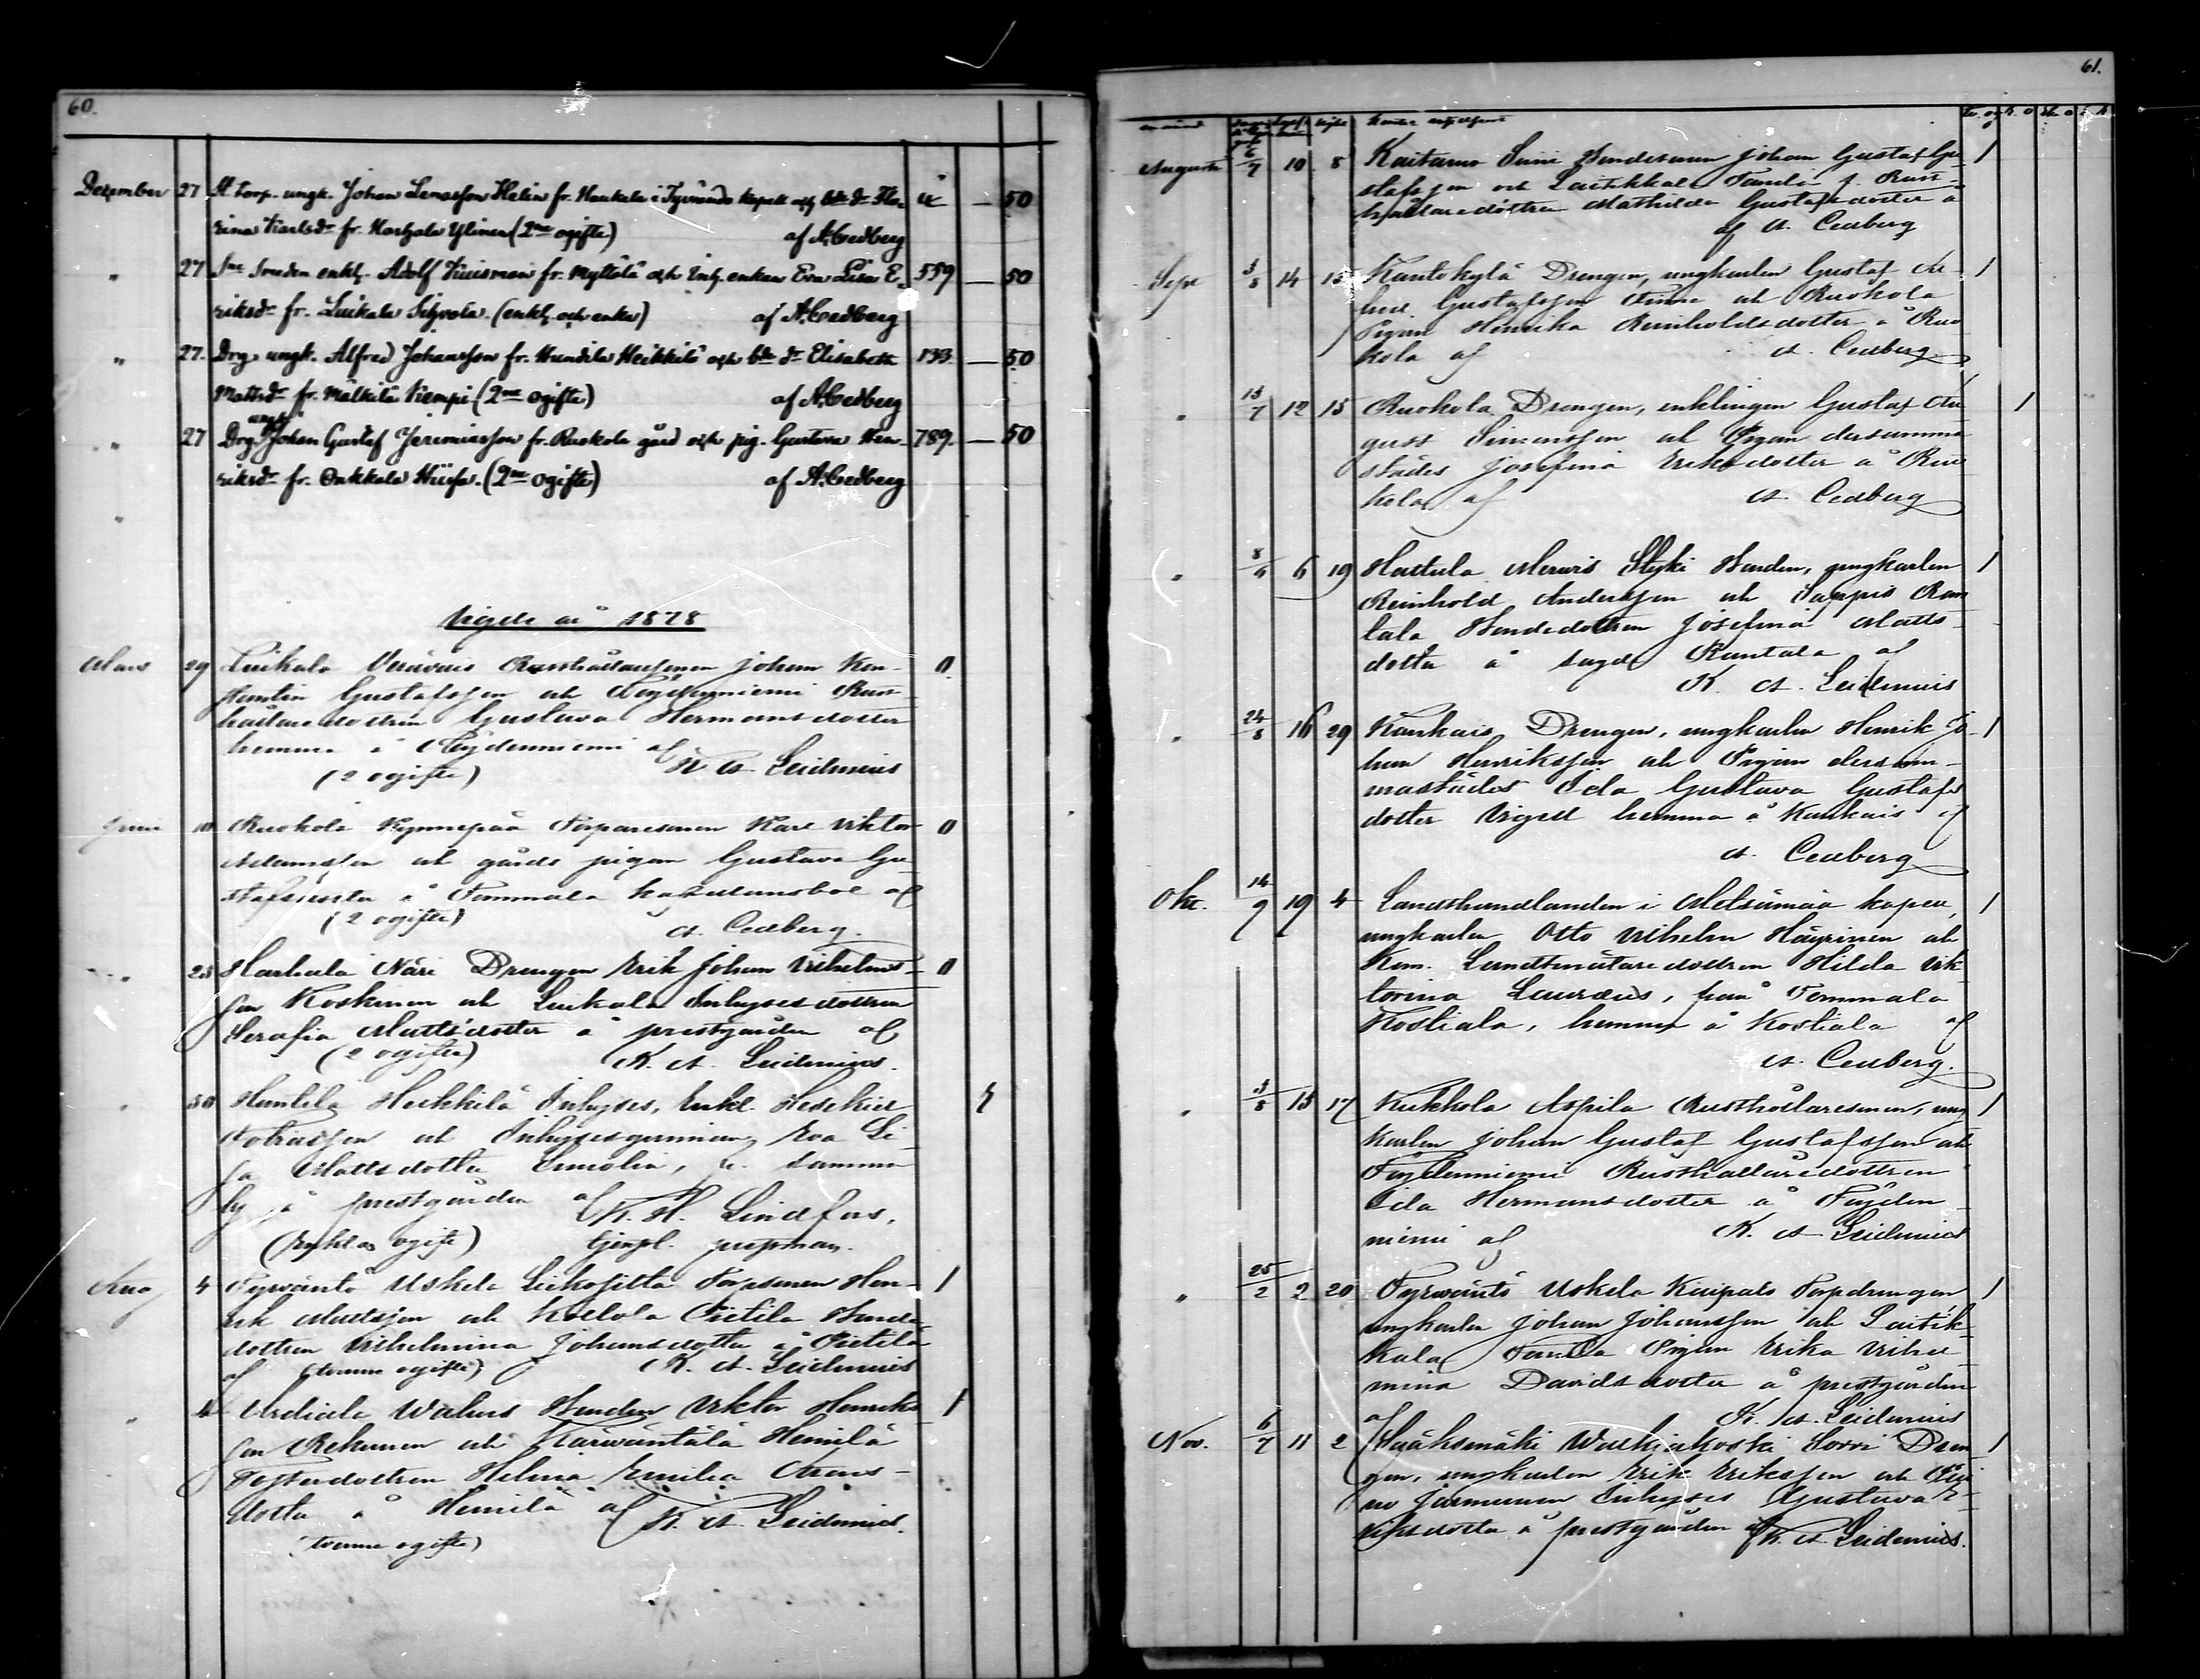 60.
Dezember 27 St torp. ungk. Johan Henasson Helin fr. Haukela i Tyrvändö kapell och bde dr Hen- ut — 50
rina Karlsdr fr. Harhala Ylinen (2ne ogifte) af A. Cedberg
" 27 Sne Smeden enkl. Adolf Kuisman fr. Myttälä och Inh. enkan Eva Lisa E- 559 — 50
riksdr fr. Luikala Sipola. (enkl. och enka) af A. Cedberg
" 27. Drg. ungk. Alfred Johansson fr. Hundila Heikkilä och bde dr Elisabeth 133. — 50
Mattsdr fr. Mälkilä Kempi (2ne ogifte) af A. Cedberg
ungk.
" 27 Drg. Johan Gustaf Jeremiasson fr. Ruokola gård och pig. Gustava Hen- 789. — 50
riksdr fr. Onkkala (2ne ogifte) af A. Cedberg
"
Vigde år 1878
Mars 29 Luikala Rusthållaresonen Johan Kon- 0
stantin Gustafsson och Töydenniemi Rust-
hållaredottren Gustava Hermansdotter
hemma å Töydenniemi af
(2 ogifte) K. A. Leidenius
Juni 10 Ruokola Kynnepää Torparesonen Karl Viktor 0
Adamsson och gårds pigan Gustava Gu-
stafsdotter å Tommola kaplansbol af
(2 ogifte) A. Cedberg.
" 23 Harhala Näri Drengen Erik Johan Vilhelms- 0
son Koskinen och Luikala Inhysesdottren
Serafia Mattsdotter å prestgården af
(2 ogifte) K. A. Leidenius.
" 30 Huntila Heikkilä Inhyses, Enkl. Hesekiel
Tobiasson och Inhysesqvinnan Eva Li-
sa Mattsdotter fr. samma
by å prestgården af K. H. Lindfors,
(Enkl. o ogift) tjenstf. prestman.
Aug 4 Tyrväntö Uskela Torpsonen Hen- 1
rik Mattsson och Kollola Pietilä Bonde
dottren Vilhelmina Johansdotter å Pietilä
af (tvenne ogifte) K. A. Leidenius
" 4 Urdiala Wahus Bonden Viktor Henriks 1
son Rekunen och Karwantala Heinilä
Fosterdottren Helena Emilia
dotter å Heinilä af K. A. Leidenius.
(tvenne ogifte)
61.
månad
Augusti 6/7 10 8 Kaitamo Simi Bondesonen Johan Gustaf Gu- 1
stafsson och Laitikkala Tamila f. Rust-
hållaredottren Mathilda Gustafsdotter å
af A. Cedberg
Sept 3/8 14 15 Kantokylä Drengen, ungkarlen Gustaf Al- 1
fred Gustafsson Finne och Ruokola
Pigan Henrika Reinholdsdotter å Ruo
kola af A. Cedberg
" 13/7 12 15 Ruokola Drengen, enklingen Gustaf Au 1
gust Simonsson och Pigan dersamma
städes Josefina Eriksdotter å Ruo
kola af A. Cedberg
" 8/6 6 19 Hattula Merwis Slyki Bonden, ungkarlen 1
Reinhold Andersson och Sappis Ran
tala Bondedottren Josefina Matts
dotter å sagde Rantala af
K. A. Leidenius
" 24/8 16 29 Kankais Drengen, ungkarlen Henrik Jo- 1
han Henriksson och Pigan dersam-
mastädes Ida Gustava Gustafs
dotter Vigsel hemma å Kankais af
A. Cedberg
Okt. 14/9 19 4 Landthandlanden i Metsämaa kapell, 1
ungkarlen Otto Vilhelm Häyrinen och
Kom. Landtmätaredottren Hilda Vik
torina Lauræus, från Tommola
Kostiala, hemma å Kostiala af
A. Cedberg.
" 3/8 13 17 Kukkola Aspila Rusthållaresonen, ung 1
karlen Johan Gustaf Gustafsson och
Töydenniemi Rusthållaredottren
Ida Hermansdotter å Töyden
niemi af K. A. Leidenius
" 25/2 2 20 Tyrwäntö Uskela Torpdrengen 1
ungkarlen Johan Johansson och Laitik-
kala Tamila Pigan Erika Vilhel-
mina Davidsdotter å prestgården
af K. A. Leidenius
Nov. 6/7 11 2 Sääksmäki Walkiakoski Sorri Dren 1
gen, ungkarlen Erik Eriksson och
Inhyses Gustava E-
riksdotter å prestgården af K. A. Leidenius.